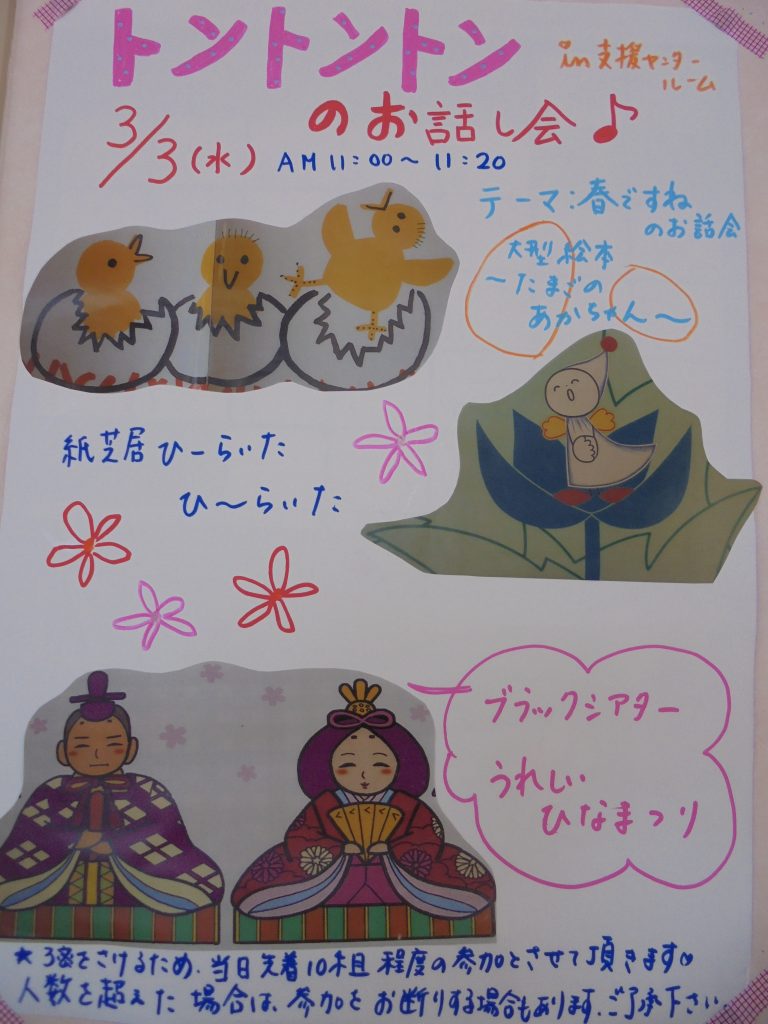 トントントン
in 支援センタールーム
のお話し会♪
3/3(水) AM11:00～11:20
テーマ:春ですね
のお話会
大型絵本
～たまごの
あかちゃん～
紙芝居 ひーらいた
ひ～らいた
ブラックシアター
うれしい
ひなまつり
★3密をさけるため、当日先着10組程度の参加とさせて頂きます♡
人数を超えた場合は、参加をお断りする場合もあります、ご了承下さい。